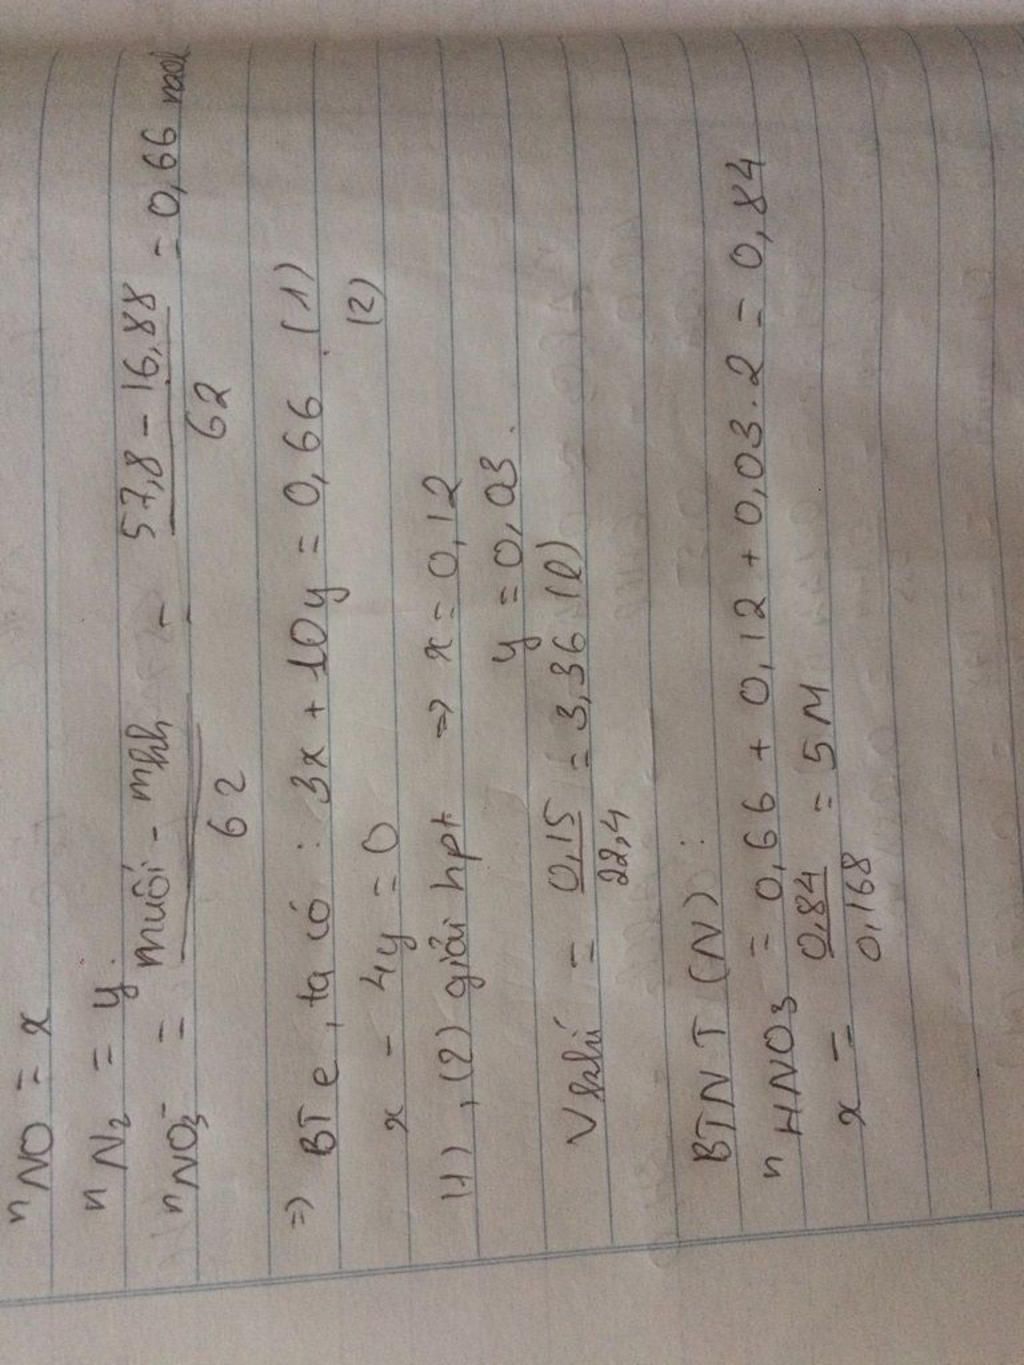 nNO = x
nN2 = y.
nNO3⁻ = muối - mhh / 62 = 57,8 - 16,88 / 62 = 0,66 mol
=> BT e, ta có : 3x + 10y = 0,66 (1)
x - 4y = 0 (2)
(1), (2) giải hpt => x = 0,12
y = 0,03.
V khí = 0,15 / 22,4 = 3,36 (l)
BTNT (N) :
nHNO3 = 0,66 + 0,12 + 0,03.2 = 0,84
x = 0,84 / 0,168 = 5M